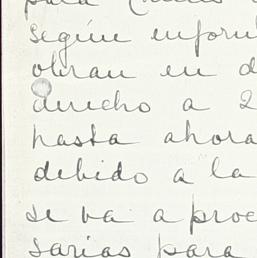 para
según inform
obran en d
derecho a 2
hasta ahora
debido a la
se va a proc
sarias para